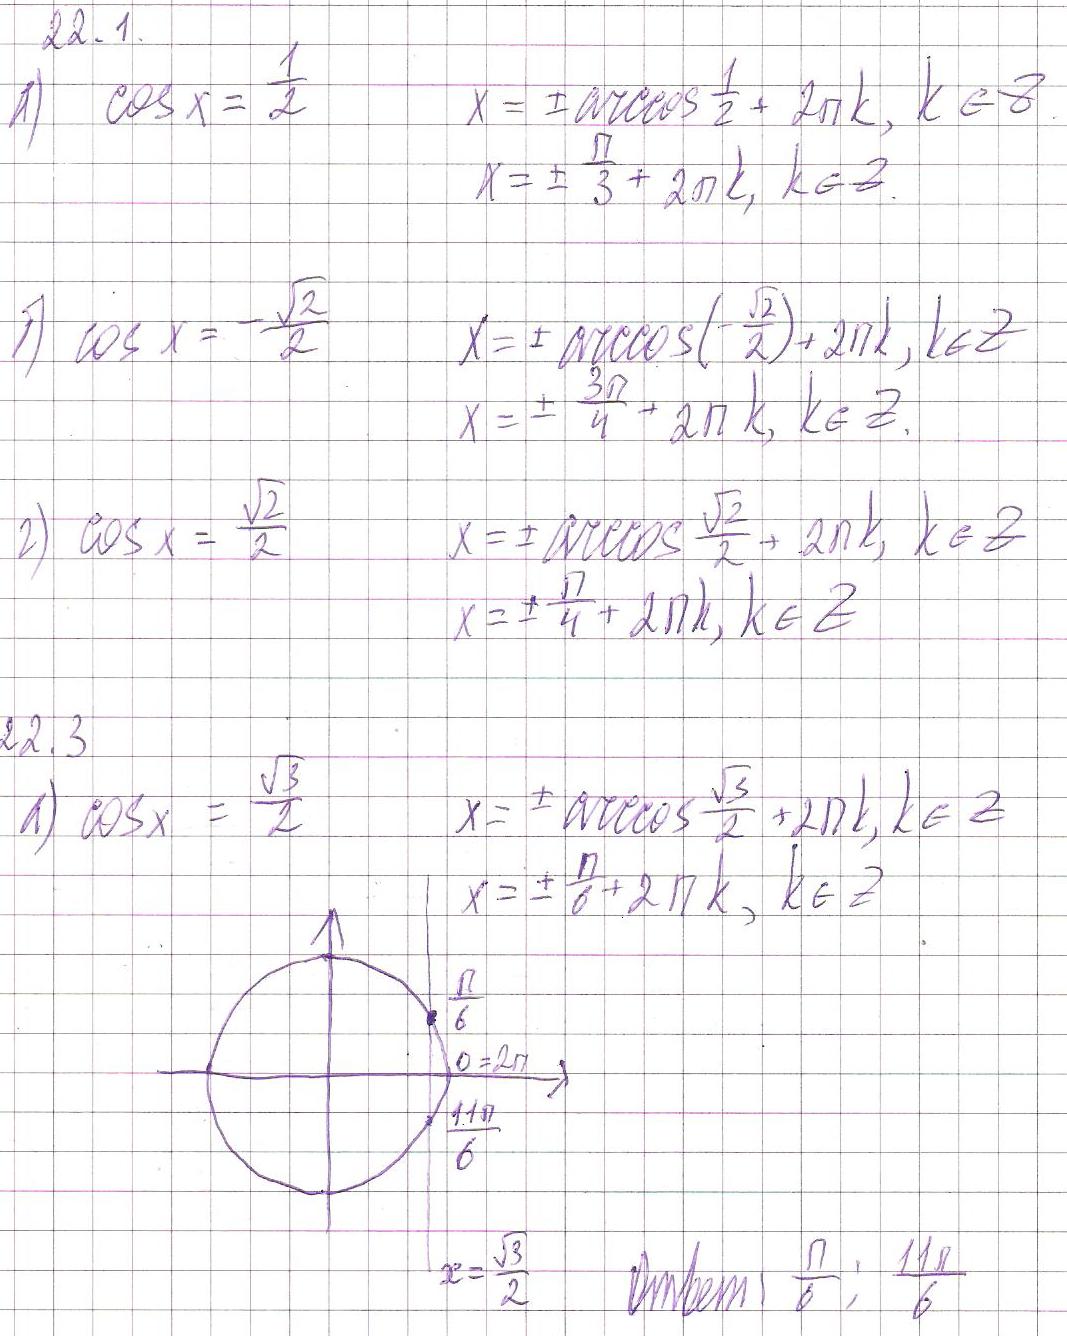 22.1.
а) cos x = 1/2 x = ± arccos 1/2 + 2πk, k ∈ Z.
x = ± π/3 + 2πk, k ∈ Z.
б) cos x = -√2/2 x = ± arccos(-√2/2) + 2πk, k ∈ Z
x = ± 3π/4 + 2πk, k ∈ Z.
г) cos x = √2/2 x = ± arccos √2/2 + 2πk, k ∈ Z
x = ± π/4 + 2πk, k ∈ Z
22.3
а) cos x = √3/2 x = ± arccos √3/2 + 2πk, k ∈ Z
x = ± π/6 + 2πk, k ∈ Z
π/6
0 = 2π
11π/6
x = √3/2 Ответ: π/6; 11π/6